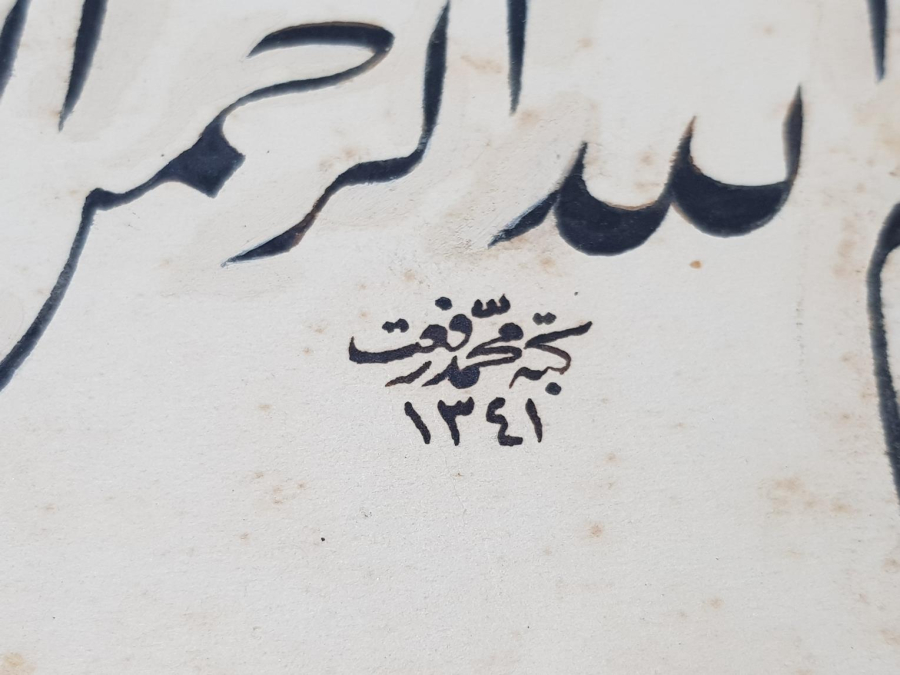 الله الرحمن
كتبه محمد رفعت
١٣٤١